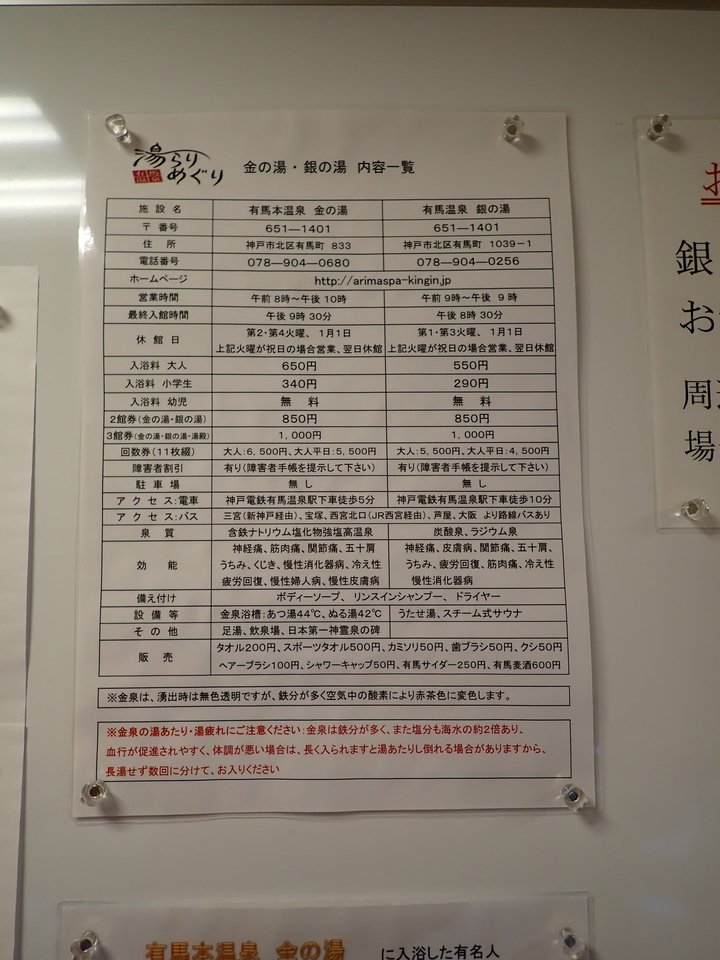 湯らり
めぐり
金の湯・銀の湯 内容一覧
施設名 有馬本温泉 金の湯 有馬温泉 銀の湯
〒番号 651―1401 651―1401
住所 神戸市北区有馬町 833 神戸市北区有馬町 1039－1
電話番号 078―904―0680 078―904―0256
ホームページ http://arimaspa-kingin.jp
営業時間 午前 8時～午後 10時 午前 9時～午後 9 時
最終入館時間 午後 9時 30分 午後 8時 30分
休館日 第2・第4火曜、 1月1日 第1・第3火曜、 1月1日
上記火曜が祝日の場合営業、翌日休館 上記火曜が祝日の場合営業、翌日休館
入浴料 大人 650円 550円
入浴料 小学生 340円 290円
入浴料 幼児 無 料 無 料
2館券(金の湯・銀の湯) 850円 850円
3館券(金の湯・銀の湯・湯殿) 1,000円 1,000円
回数券(11枚綴) 大人:6,500円、大人平日:5,500円 大人:5,500円、大人平日:4,500円
障害者割引 有り(障害者手帳を提示して下さい) 有り(障害者手帳を提示して下さい)
駐車場 無し 無し
アクセス:電車 神戸電鉄有馬温泉駅下車徒歩5分 神戸電鉄有馬温泉駅下車徒歩10分
アクセス:バス 三宮(新神戸経由)、宝塚、西宮北口(JR西宮経由)、芦屋、大阪 より路線バスあり
泉質 含鉄ナトリウム塩化物強塩高温泉 炭酸泉、ラジウム泉
効能 神経痛、筋肉痛、関節痛、五十肩 神経痛、皮膚病、関節痛、五十肩、
うちみ、くじき、慢性消化器病、冷え性 うちみ、疲労回復、筋肉痛、冷え性
疲労回復、慢性婦人病、慢性皮膚病 慢性消化器病
備え付け ボディーソープ、 リンスインシャンプー、 ドライヤー
設備等 金泉浴槽:あつ湯44℃、ぬる湯42℃ うたせ湯、スチーム式サウナ
その他 足湯、飲泉場、日本第一神霊泉の碑
販売 タオル200円、スポーツタオル500円、カミソリ50円、歯ブラシ50円、クシ50円
ヘアーブラシ100円、シャワーキャップ50円、有馬サイダー250円、有馬麦酒600円
※金泉は、湧出時は無色透明ですが、鉄分が多く空気中の酸素により赤茶色に変色します。
※金泉の湯あたり・湯疲れにご注意ください:金泉は鉄分が多く、また塩分も海水の約2倍あり、
血行が促進されやすく、体調が悪い場合は、長く入られますと湯あたりし倒れる場合がありますから、
長湯せず数回に分けて、お入りください
有馬本温泉 金の湯 に入浴した有名人
銀
お
周
場